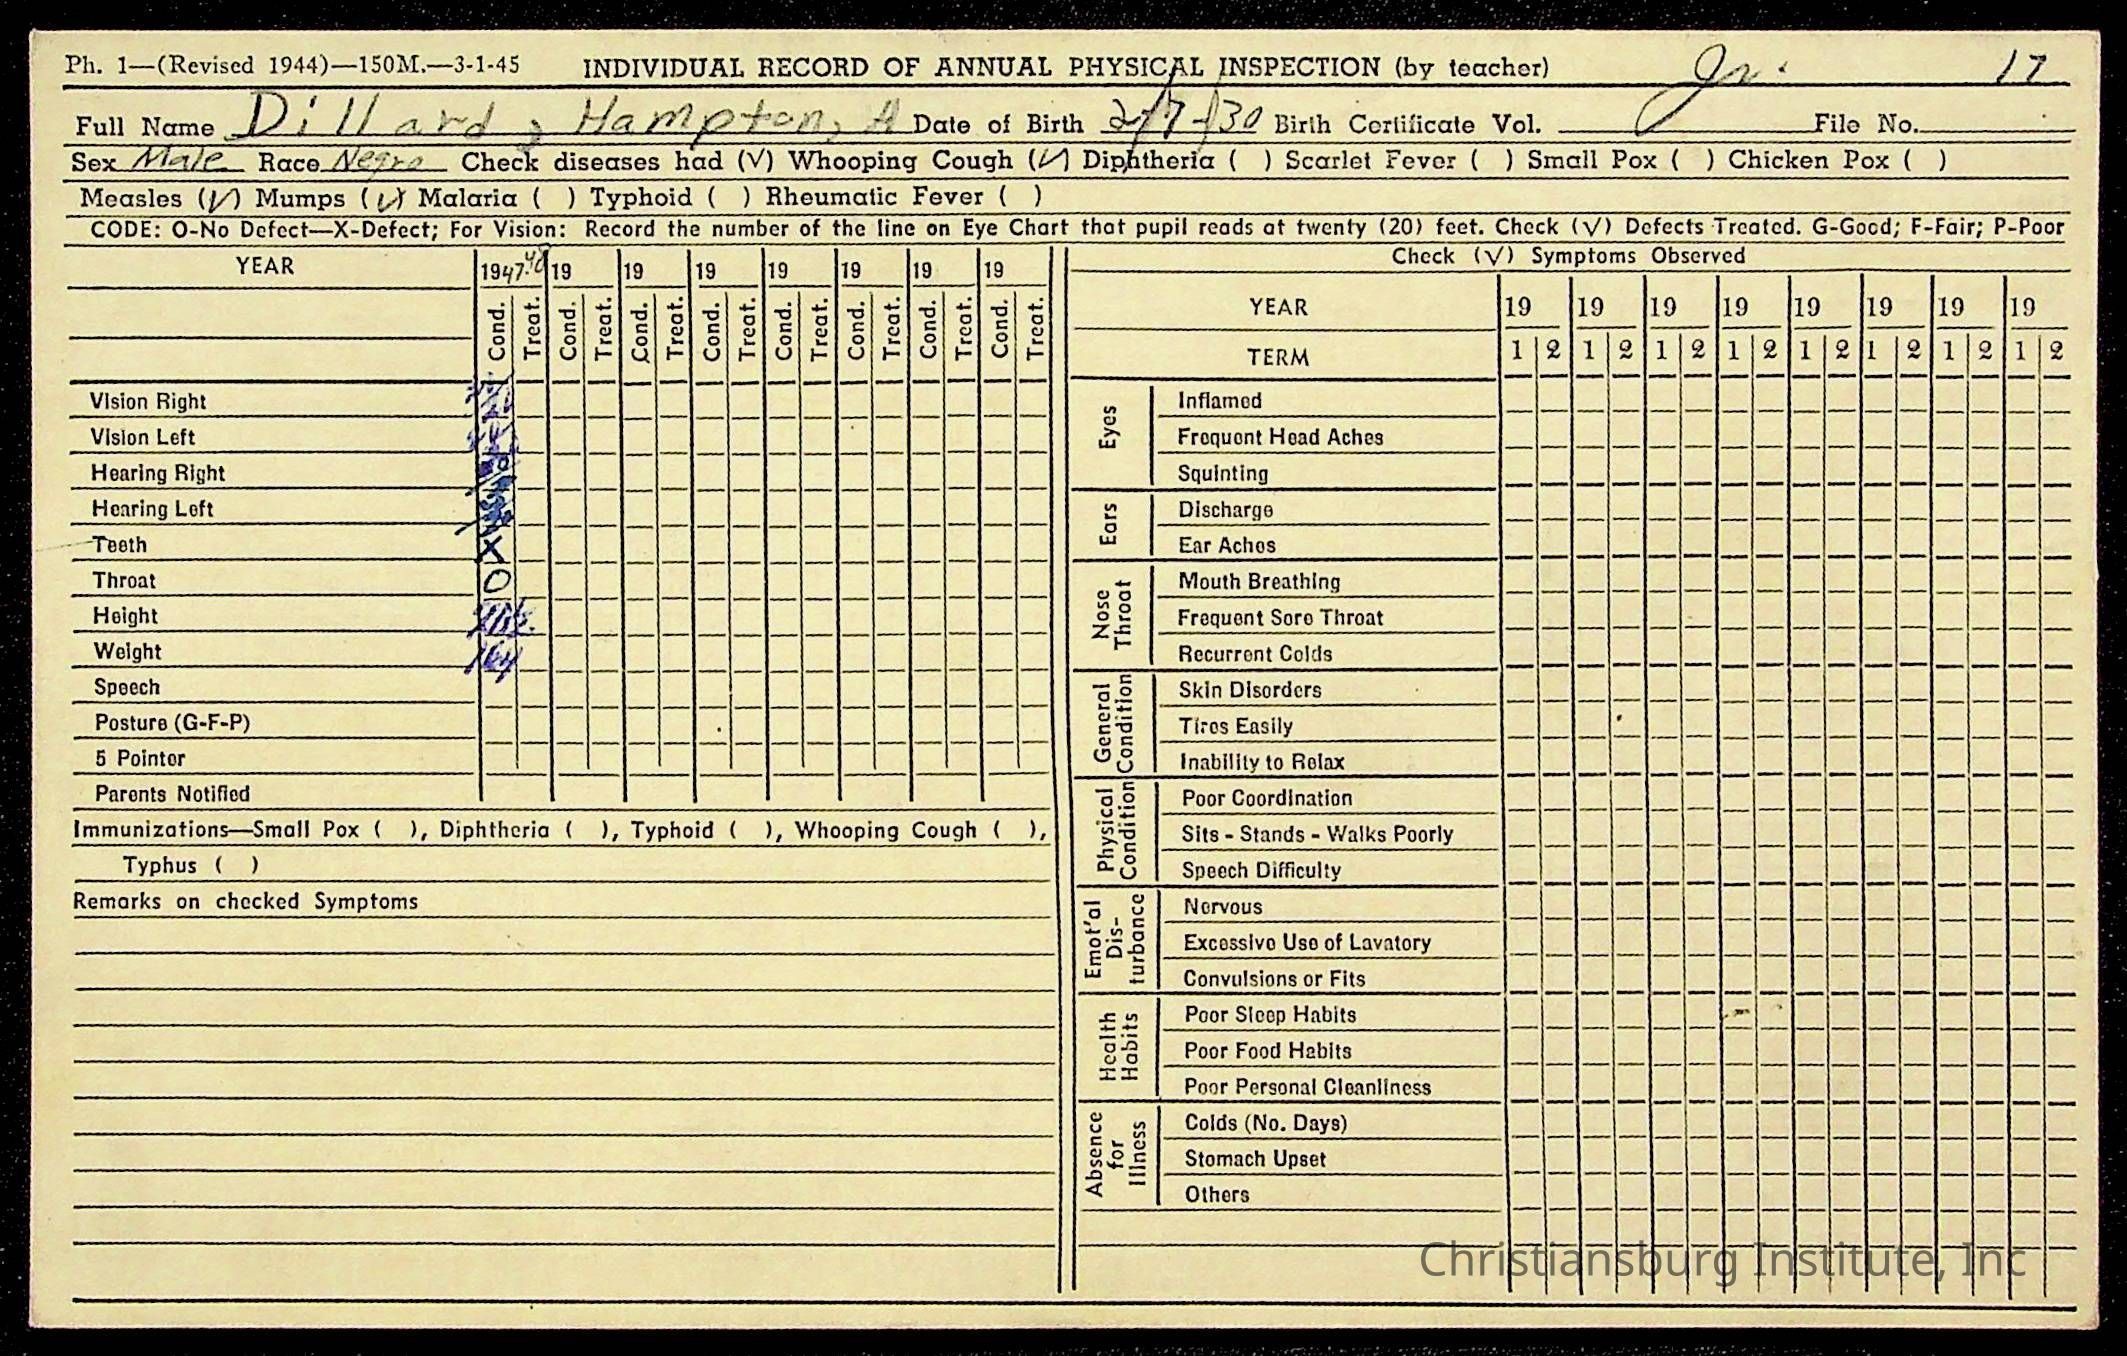 Ph. 1—(Revised 1944)—150M.—3-1-45 INDIVIDUAL RECORD OF ANNUAL PHYSICAL INSPECTION (by teacher) Jr. 17
Full Name Dillard, Hampton, A Date of Birth 2-7-30 Birth Certificate Vol. File No.
Sex Male Race Negro Check diseases had (√) Whooping Cough (√) Diphtheria ( ) Scarlet Fever ( ) Small Pox ( ) Chicken Pox ( )
Measles (√) Mumps (√) Malaria ( ) Typhoid ( ) Rheumatic Fever ( )
CODE: O-No Defect—X-Defect; For Vision: Record the number of the line on Eye Chart that pupil reads at twenty (20) feet. Check (√) Defects Treated. G-Good; F-Fair; P-Poor
YEAR 1947-48 19 19 19 19 19 19 19
Cond. Treat. Cond. Treat. Cond. Treat. Cond. Treat. Cond. Treat. Cond. Treat. Cond. Treat. Cond. Treat.
Vision Right
Vision Left
Hearing Right
Hearing Left
Teeth X
Throat O
Height
Weight 164
Speech
Posture (G-F-P)
5 Pointer
Parents Notified
Immunizations—Small Pox ( ), Diphtheria ( ), Typhoid ( ), Whooping Cough ( ),
Typhus ( )
Remarks on checked Symptoms
Check (√) Symptoms Observed
YEAR 19 19 19 19 19 19 19 19
TERM 1 2 1 2 1 2 1 2 1 2 1 2 1 2 1 2
Eyes
Inflamed
Frequent Head Aches
Squinting
Ears
Discharge
Ear Aches
Nose Throat
Mouth Breathing
Frequent Sore Throat
Recurrent Colds
General Condition
Skin Disorders
Tires Easily
Inability to Relax
Physical Condition
Poor Coordination
Sits - Stands - Walks Poorly
Speech Difficulty
Emot'al Dis-turbance
Nervous
Excessive Use of Lavatory
Convulsions or Fits
Health Habits
Poor Sleep Habits
Poor Food Habits
Poor Personal Cleanliness
Absence for Illness
Colds (No. Days)
Stomach Upset
Others
Christiansburg Institute, Inc